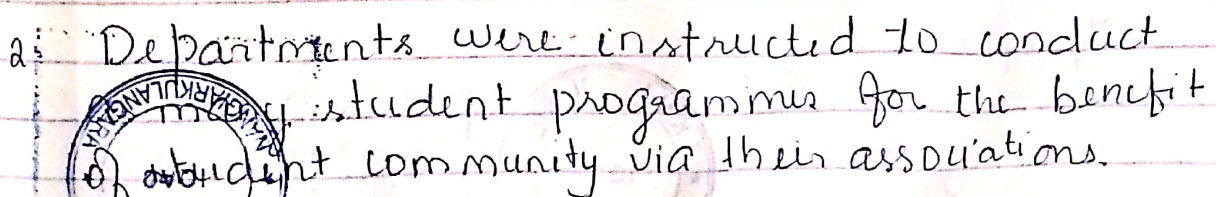 2. Departments were instructed to conduct
many student programmes for the benefit
of student community via their associations.